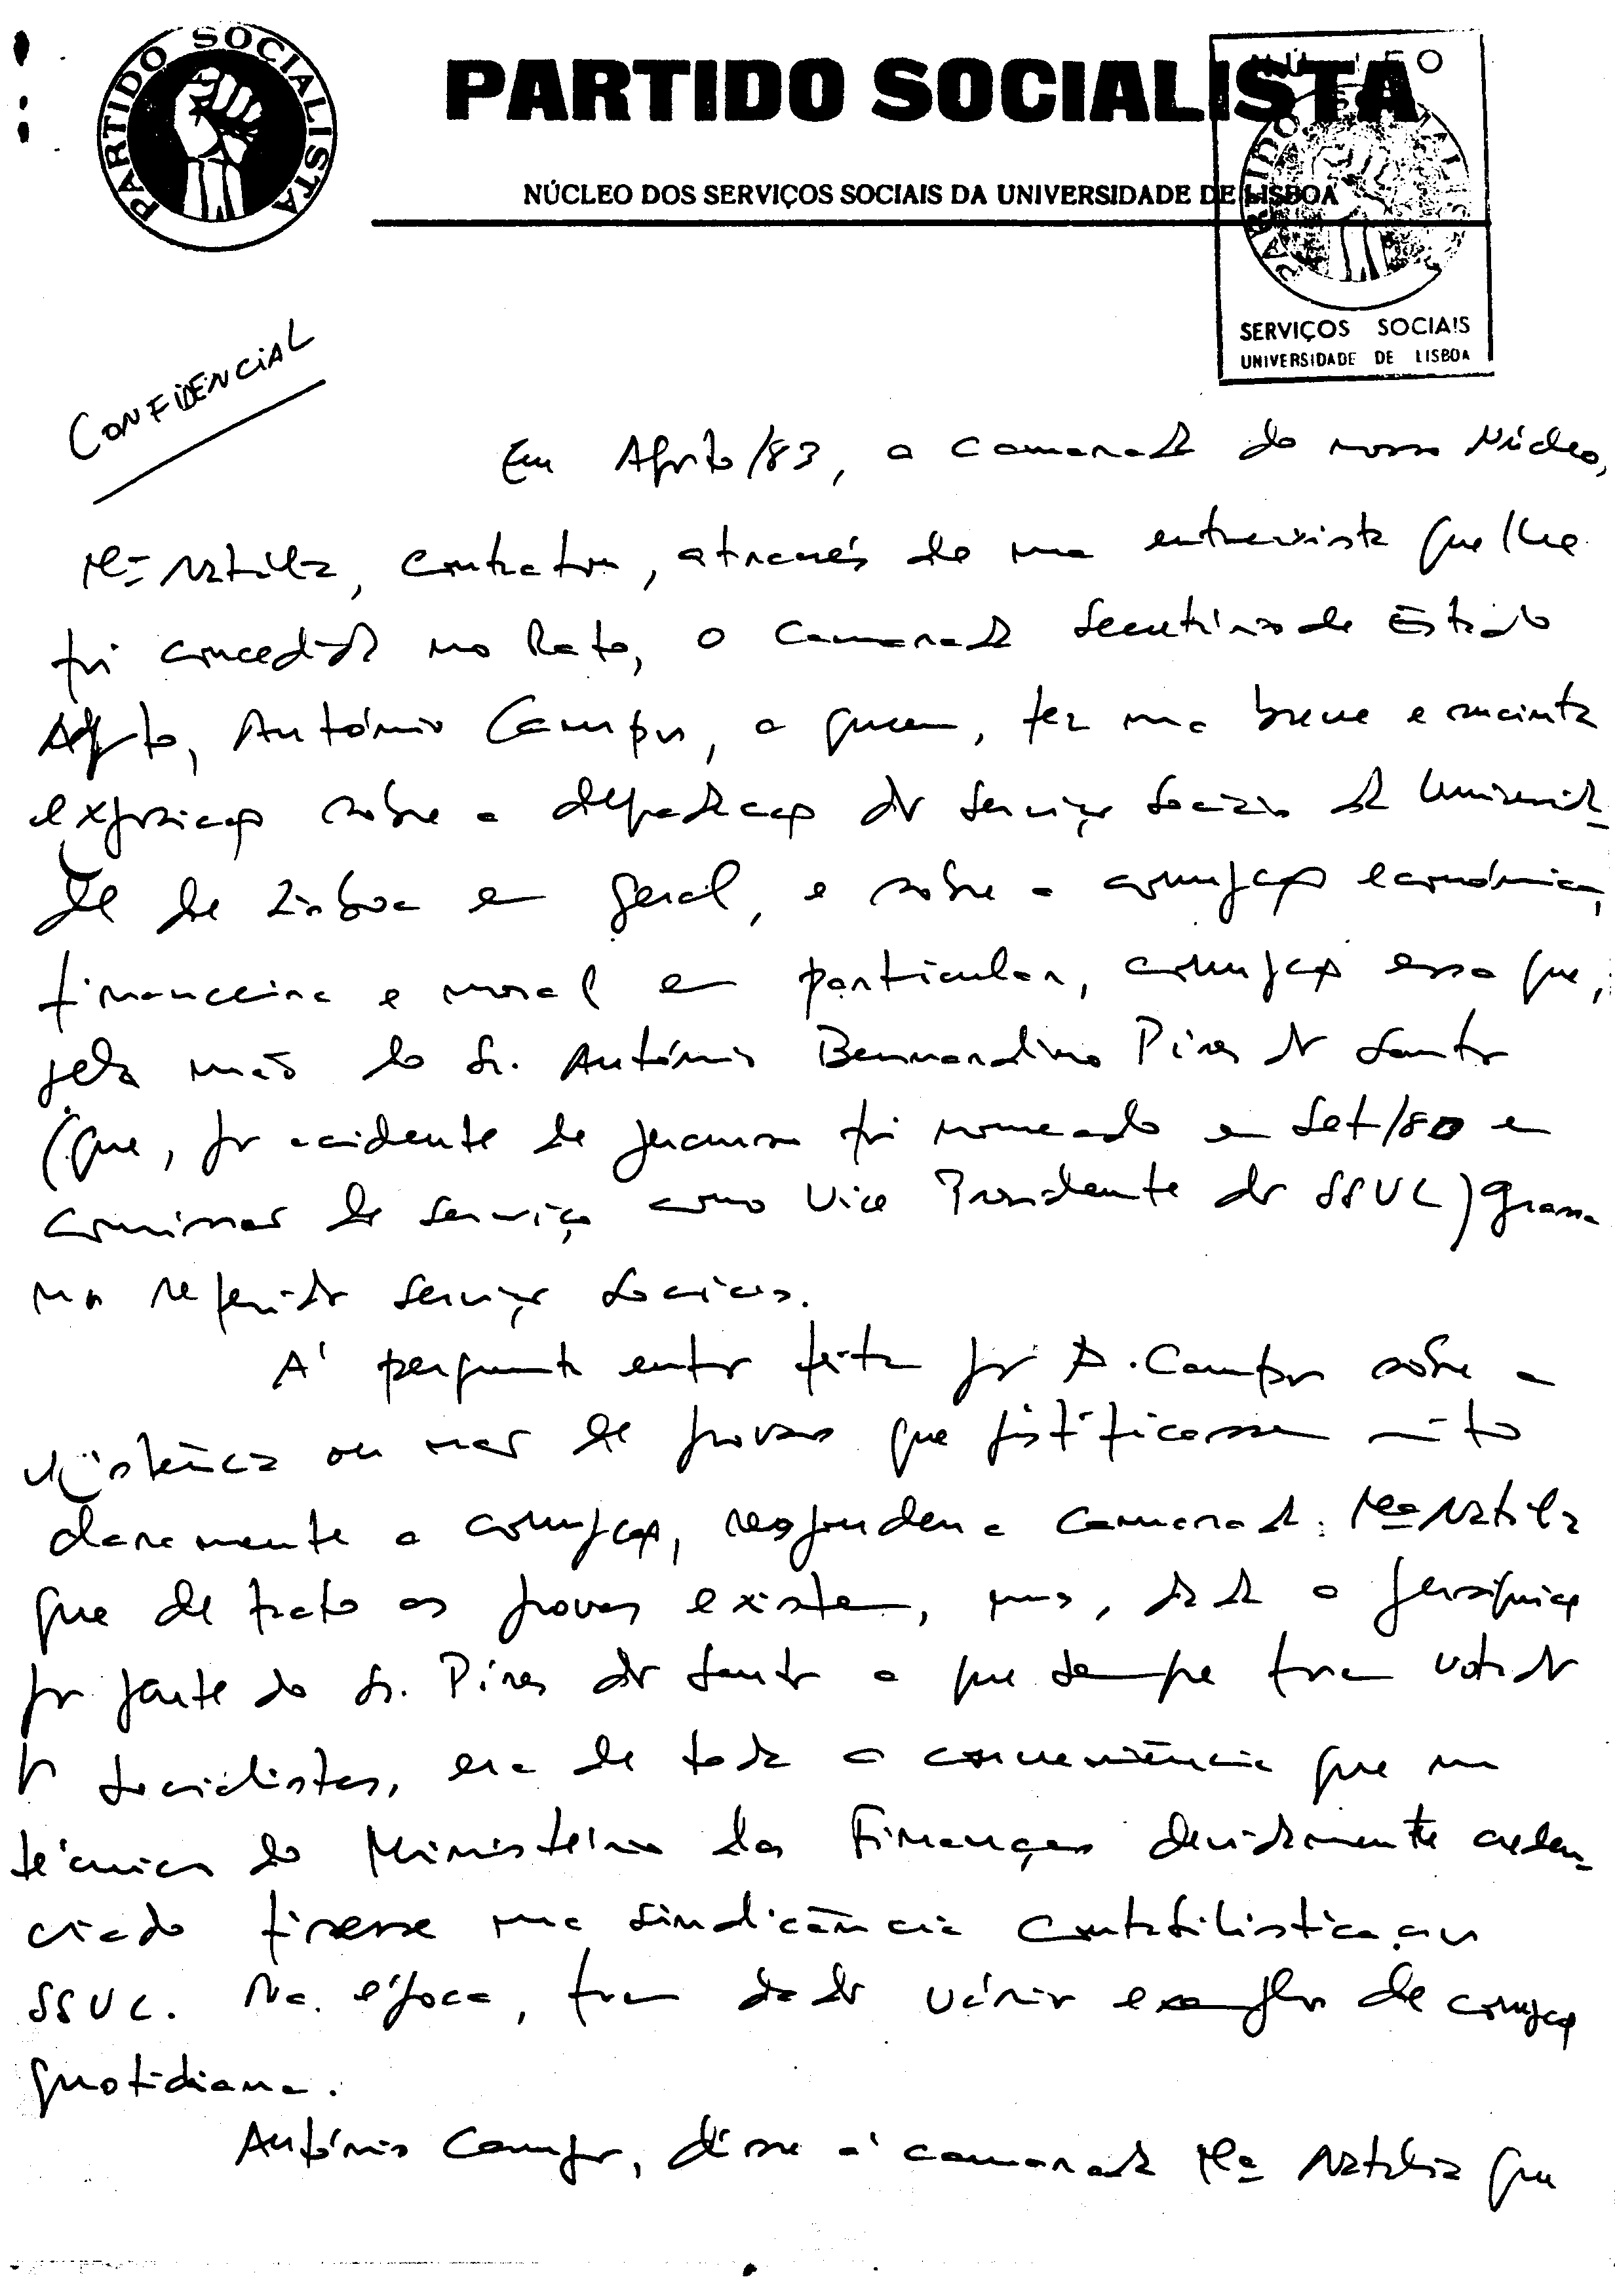 PARTIDO SOCIALISTA
PARTIDO SOCIALISTA
NÚCLEO DOS SERVIÇOS SOCIAIS DA UNIVERSIDADE DE LISBOA
NÚCLEO
PARTIDO SOCIALISTA
SERVIÇOS SOCIAIS
UNIVERSIDADE DE LISBOA
CONFIDENCIAL
Em Agosto/83, a camarada do nosso Núcleo,
Mª Natália, contactou, através de uma entrevista que lhe
foi concedida no Rato, o camarada Secretário de Estado
Adjto, António Campos, a quem, fez uma breve e sucinta
exposição sobre a degradação dos Serviços Sociais da Universida-
de de Lisboa em geral, e sobre a corrupção económica,
financeira e moral em particular, corrupção essa que,
pela mão do Sr. António Bernardino Pires dos Santos
(que, por acidente de percurso foi nomeado em Set/80 em
comissão de serviço como Vice Presidente dos SSUL) grassa
nos referidos Serviços Sociais.
Á pergunta então feita por A. Campos sobre a
existência ou não de provas que justificassem muito
claramente a corrupção, respondeu a camarada Mª Natália
que de facto as provas existem, mas, dada a perseguição
por parte do Sr. Pires dos Santos a que sempre foram votados
os socialistas, era de toda a conveniência que um
técnico do Ministério das Finanças devidamente creden-
ciado fizesse uma sindicância contabilística aos
SSUL. Na época, foram dados vários exemplos de corrupção
quotidiana.
António Campos, disse á camarada Mª Natália que